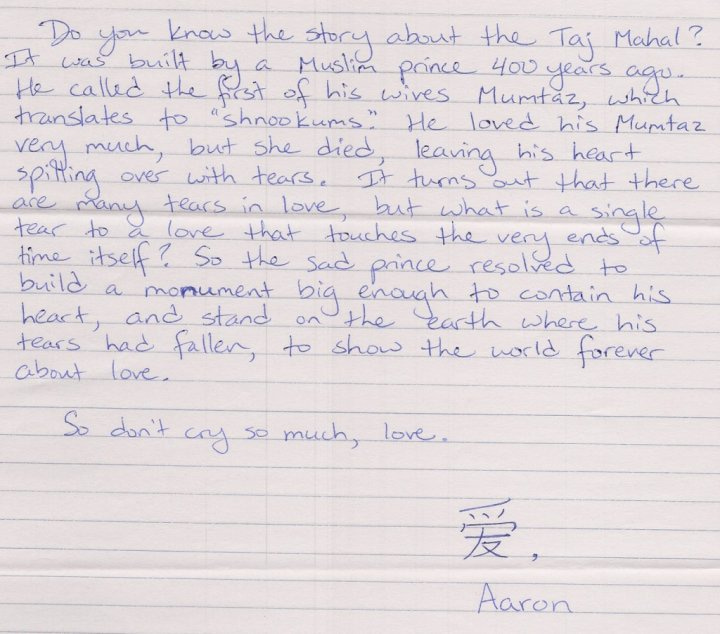 Do you know the story about the Taj Mahal?
It was built by a Muslim prince 400 years ago.
He called the first of his wives Mumtaz, which
translates to "shnookums." He loved his Mumtaz
very much, but she died, leaving his heart
spilling over with tears. It turns out that there
are many tears in love, but what is a single
tear to a love that touches the very ends of
time itself? So the sad prince resolved to
build a monument big enough to contain his
heart, and stand on the earth where his
tears had fallen, to show the world forever
about love.
So don't cry so much, love.
爱,
Aaron